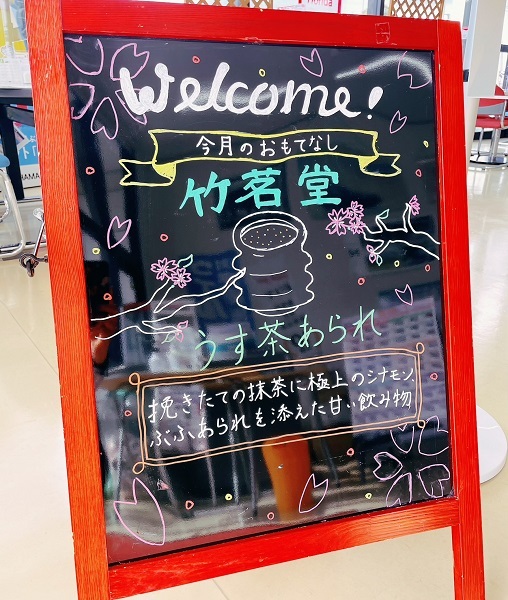 Welcome!
今月のおもてなし
竹茗堂
うす茶あられ
挽きたての抹茶に極上のシナモン、
ぶぶあられを添えた甘い飲み物